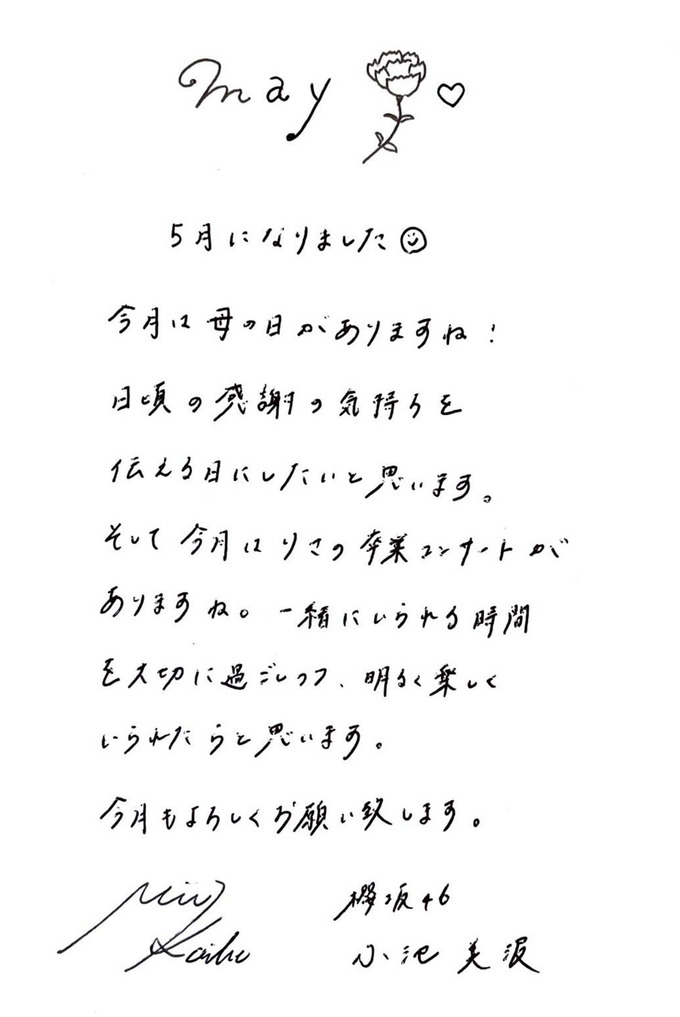 may
5月になりました
今月は母の日がありますね！
日頃の感謝の気持ちを
伝える日にしたいと思います。
そして今月はりさの卒業コンサートが
ありますね。一緒にいられる時間
を大切に過ごしつつ、明るく楽しく
いられたらと思います。
今月もよろしくお願い致します。
Mii
Koike
欅坂46
小池美波